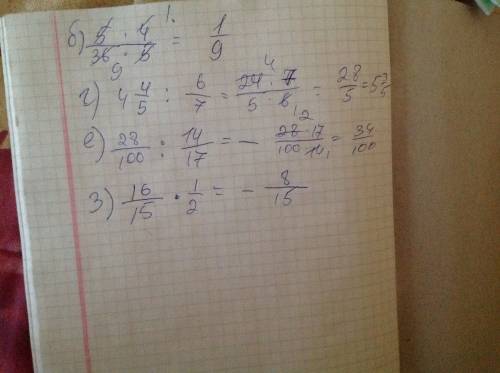 б) 5 · 4 / 36 · 5 = 1/9
9
г) 4 4/5 : 6/7 = 24 · 7 / 5 · 6 = 28/5 = 5 3/5
е) 28/100 : 14/17 = - 28 · 17 / 100 · 14 = 34/100
з) 16/15 · 1/2 = - 8/15